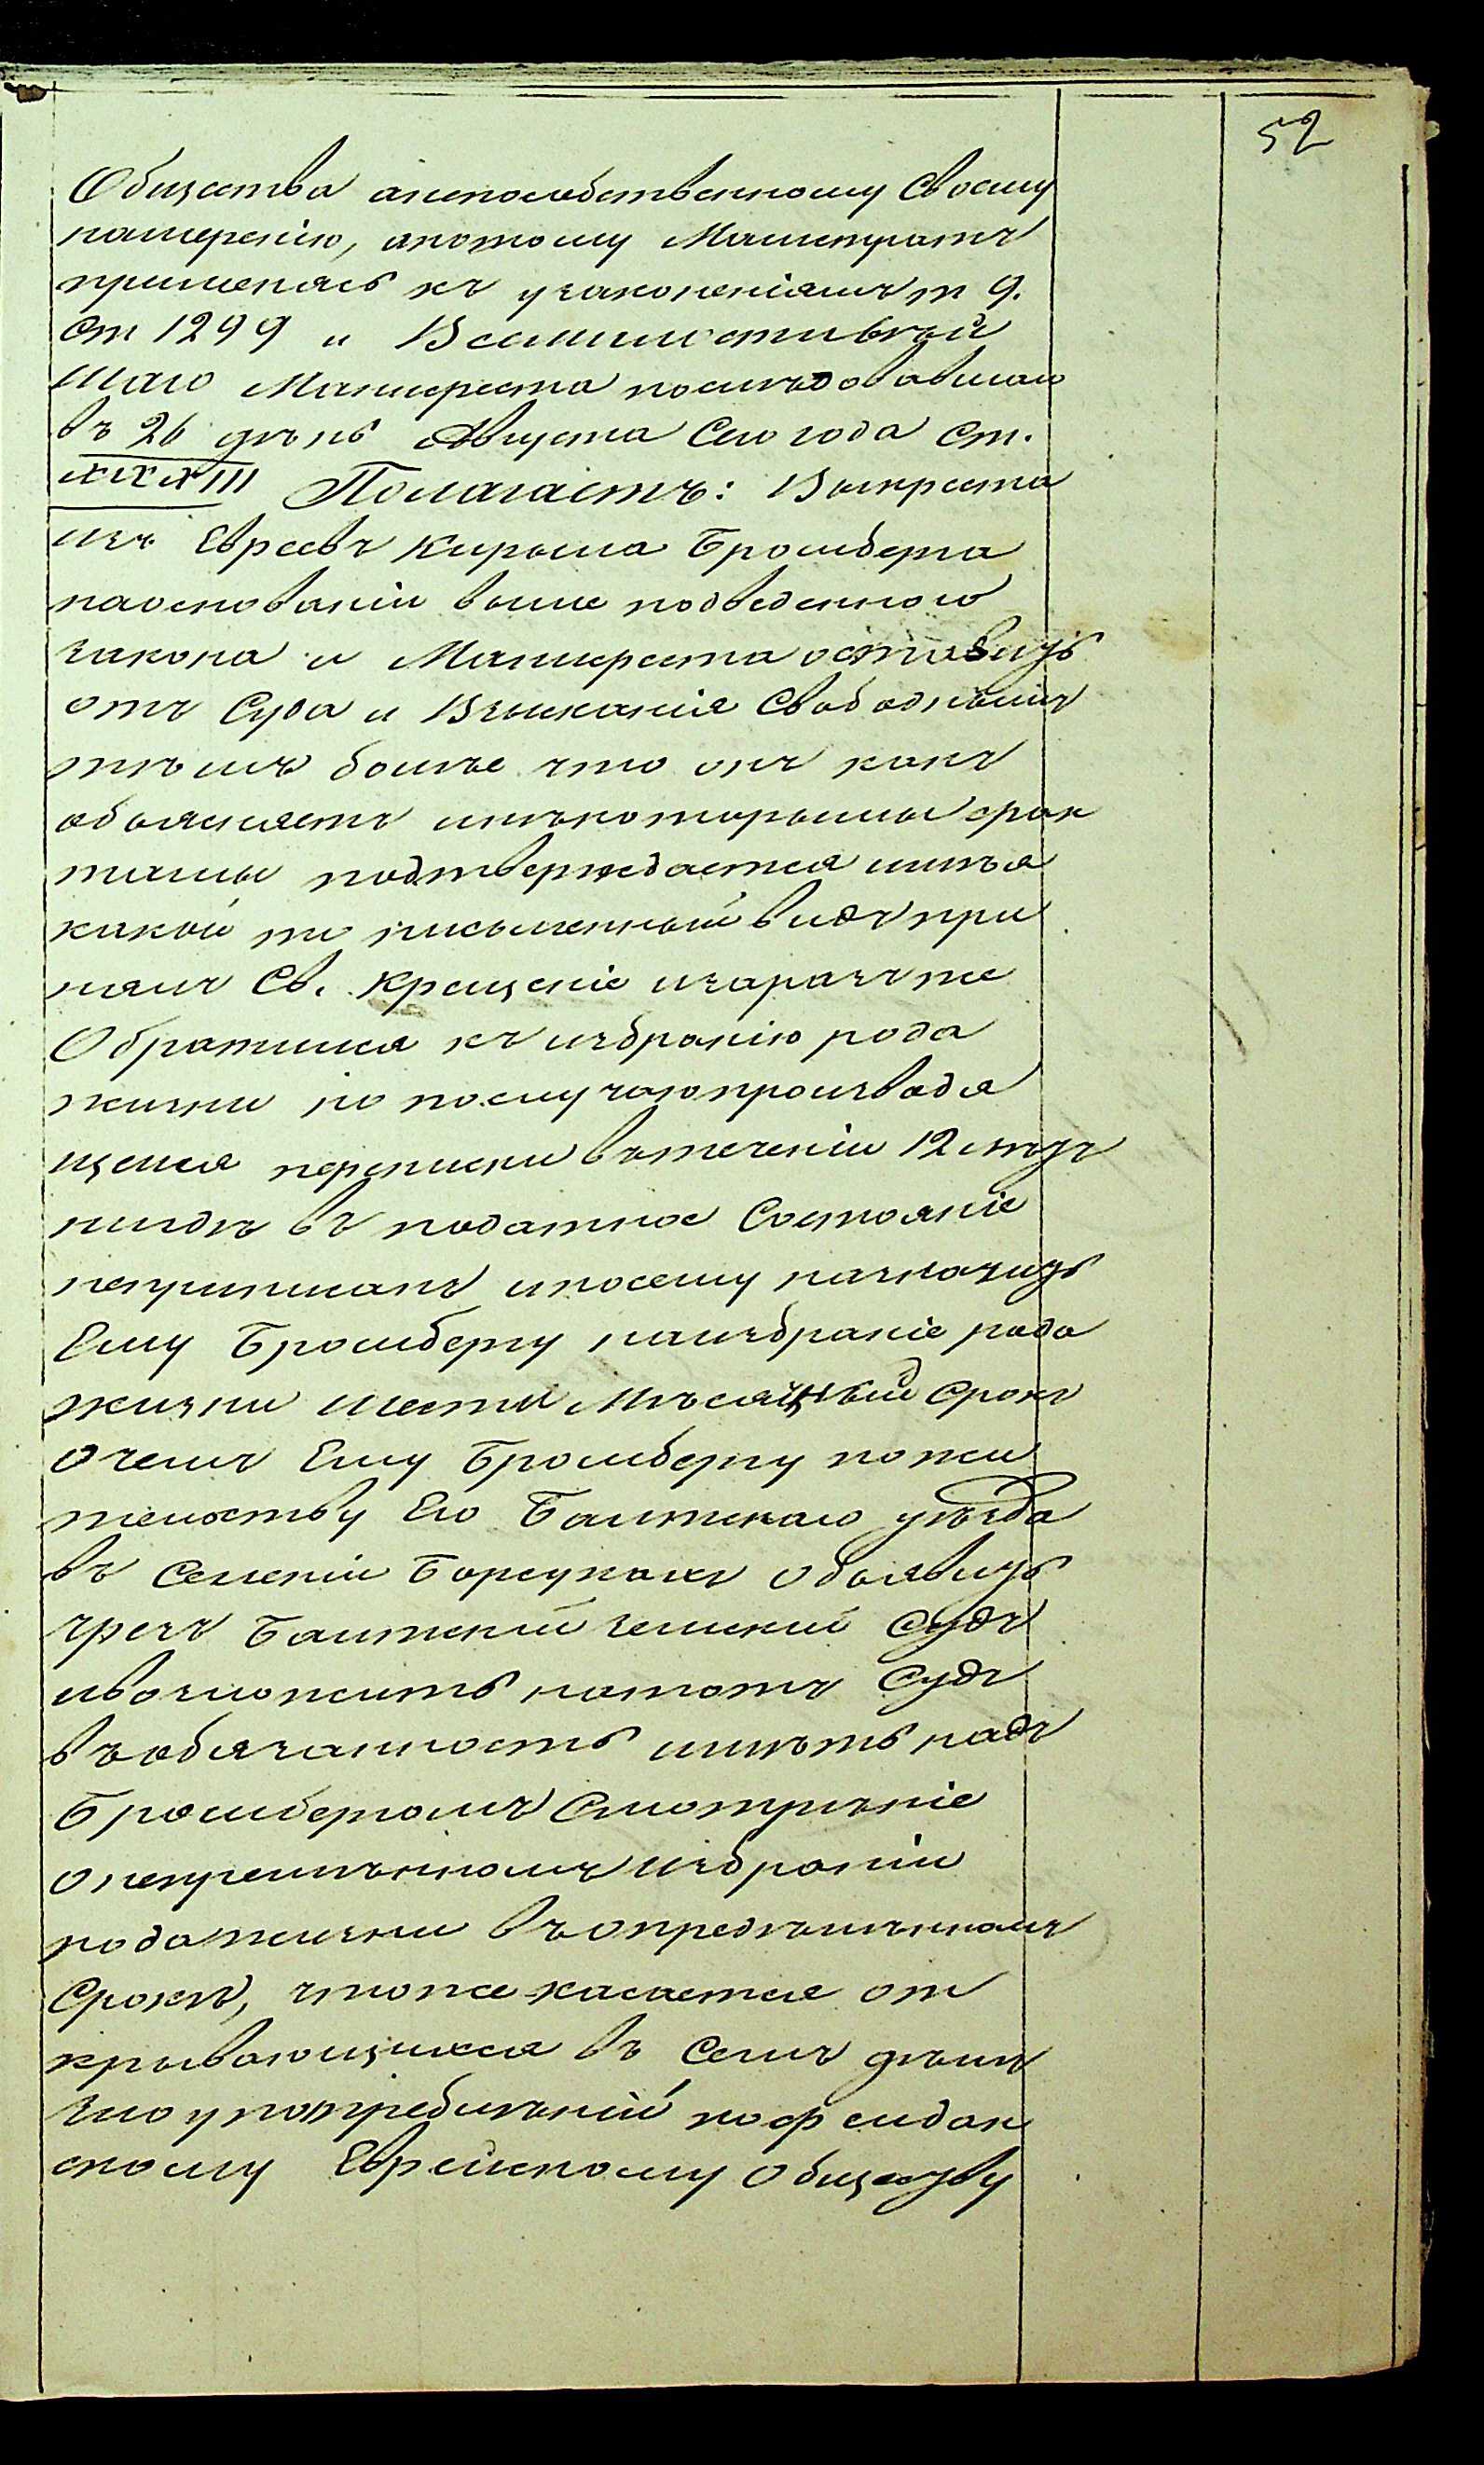 52
Общества анепособственному Своему
намеренію, апотому Магистратъ
применяясь къ узаконеніямъ т 9.
ст 1299 и Всемилостивѣй
шаго Манифеста последовавшаго
въ 26 день Августа Сего года Ст.
XXXIII Полагаетъ: Выкреста
изъ Евреевъ Кирыла Бромберга
наосновании выше подведенного
закона и Манифеста оставить
отъ Суда и Взысканія Свободнымъ
тѣмъ болѣе что онъ какъ
объясняетъ инѣкоторыми фак
тами подтверждается имѣя
какой то письменный видъ при
нялъ Св. Крещеніе изаразъ же
Обратился къ избранію рода
жизни но послучаю производя
щейся переписки втеченіи 12 лѣтъ
нигдѣ въ податное Состояніе
неприписанъ ипосему назначить
Ему Бромбергу наизбраніе рода
жизни шести Мѣсячный Срокъ
О чемъ Ему Бромбергу по жи
тельству Его Балтскаго уѣзда
въ Селеніи Борсукахъ Объявить
чрезъ Балтскій Земскій Судъ
ивозложить натотъ Судъ
въобязанность имѣть надъ
Бромбергомъ Смотрѣніе
Онепремѣнномъ избраніи
родажизни въопредѣлѣнномъ
Срокѣ, чтоже касается от
крывающихся въ Семъ дѣлѣ
злоупотребленій пофельдан
скому Еврейскому Обществу